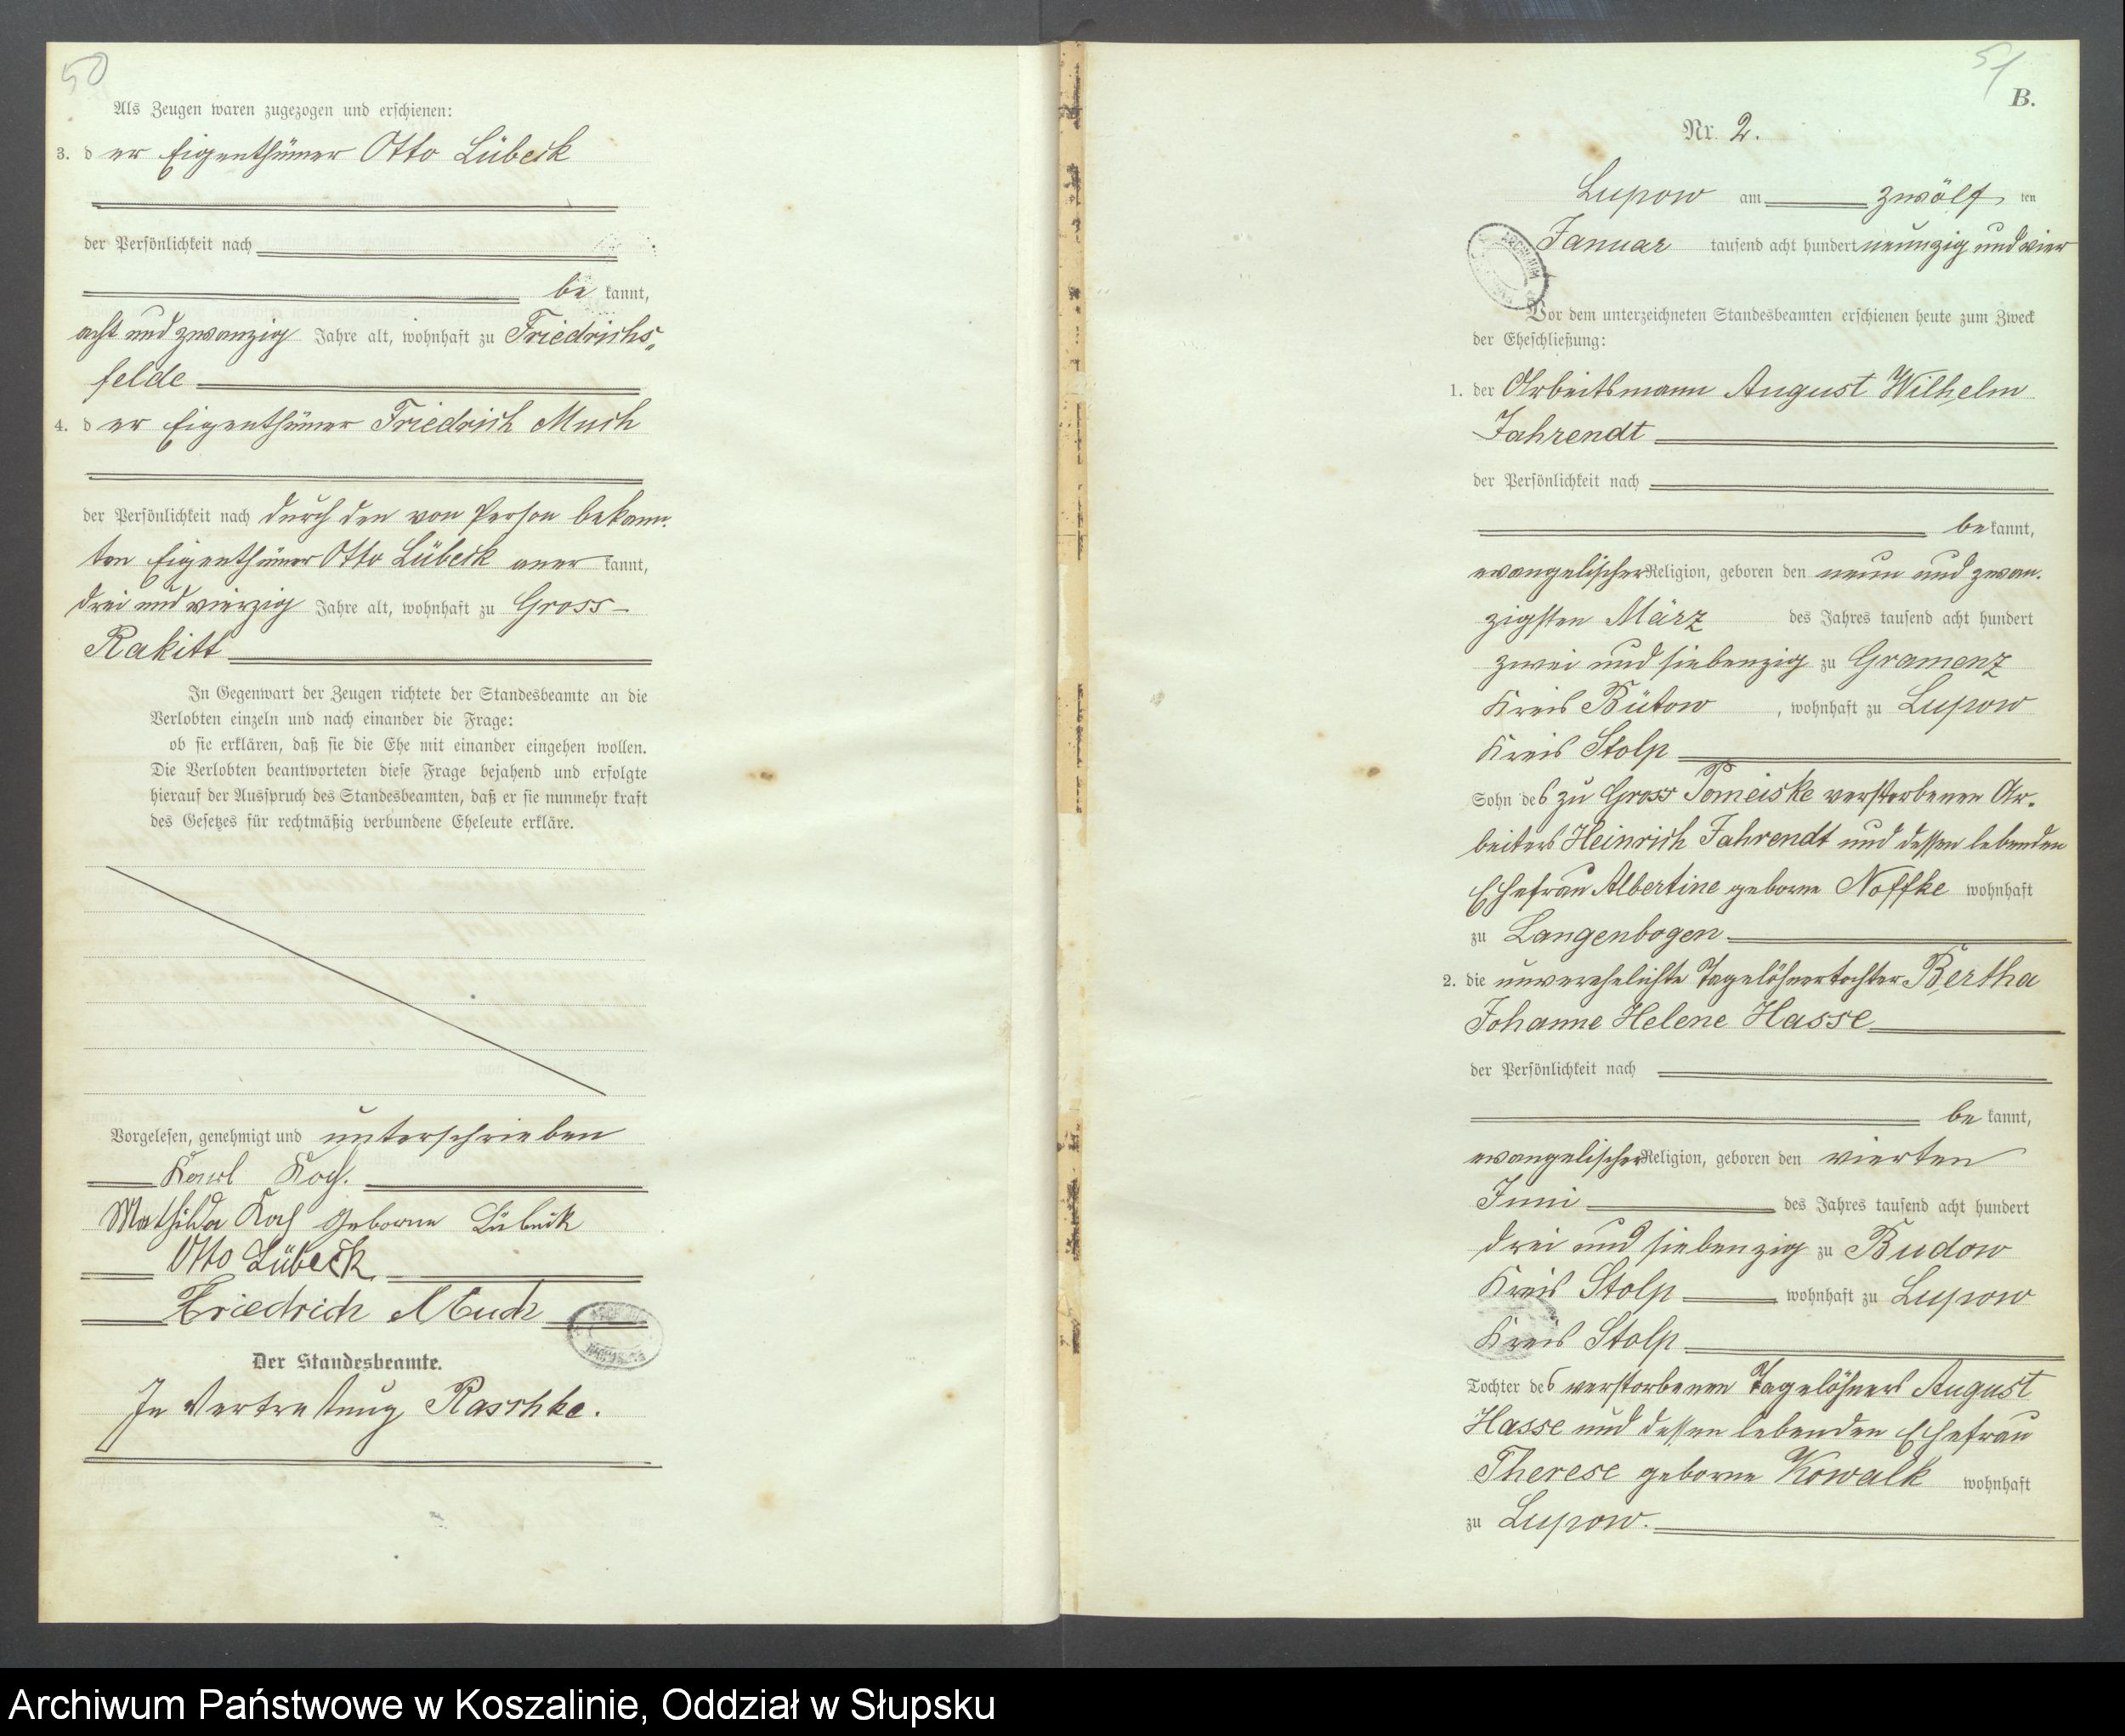 50
Als Zeugen waren zugezogen und erschienen:
3. der Eigenthümer Otto Lübeck
der Persönlichkeit nach
bekannt,
acht und zwanzig Jahre alt, wohnhaft zu Friedrichs-
felde
4. der Eigenthümer Friedrich Much
der Persönlichkeit nach durch den von Person bekann-
ten Eigenthümer Otto Lübeck anerkannt,
drei und vierzig Jahre alt, wohnhaft zu Gross-
Rakitt
In Gegenwart der Zeugen richtete der Standesbeamte an die
Verlobten einzeln und nach einander die Frage:
ob sie erklären, daß sie die Ehe mit einander eingehen wollen.
Die Verlobten beantworteten diese Frage bejahend und erfolgte
hierauf der Ausspruch des Standesbeamten, daß er sie nunmehr kraft
des Gesetzes für rechtmäßig verbundene Eheleute erkläre.
Vorgelesen, genehmigt und unterschrieben
Karl Koch.
Mathilda Koch geborne Lübeck
Otto Lübeck.
Friedrich Much
Der Standesbeamte.
In Vertretung Raschke.
51
B.
Nr. 2.
Lupow am zwölf ten
Januar tausend acht hundert neunzig und vier
Vor dem unterzeichneten Standesbeamten erschienen heute zum Zweck
der Eheschließung:
1. der Arbeitsmann August Wilhelm
Fahrendt
der Persönlichkeit nach
bekannt,
evangelischer Religion, geboren den neun und zwan-
zigsten März des Jahres tausend acht hundert
zwei und siebenzig zu Gramenz
Kreis Bütow, wohnhaft zu Lupow
Kreis Stolp
Sohn des zu Gross Pomeiske verstorbenen Ar-
beiters Heinrich Fahrendt und dessen lebenden
Ehefrau Albertine geborne Noffke wohnhaft
zu Langenbogen
2. die unverehelichte Tagelöhnertochter Bertha
Johanne Helene Hasse
der Persönlichkeit nach
bekannt,
evangelischer Religion, geboren den vierten
Juni des Jahres tausend acht hundert
drei und siebenzig zu Budow
Kreis Stolp wohnhaft zu Lupow
Kreis Stolp
Tochter des verstorbenen Tagelöhners August
Hasse und dessen lebenden Ehefrau
Therese geborne Kowalk wohnhaft
zu Lupow.
Archiwum Państwowe w Koszalinie, Oddział w Słupsku